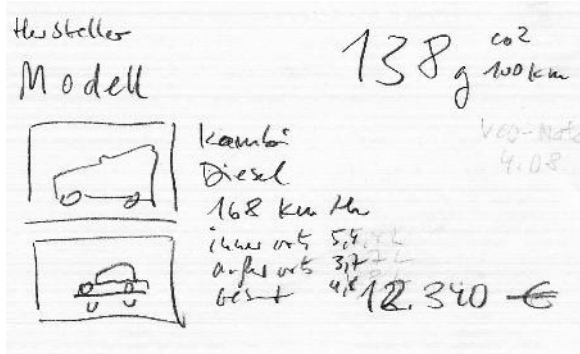 Hersteller
Modell
138 g CO2
100 km
VCD-Note
4.08
Kombi
Diesel
168 km/h
innerorts 5,4
außerorts 3,7
gesamt 4,
12.340 €